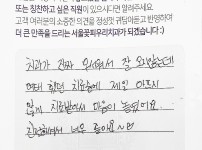 또는 칭찬하고 싶은 직원이 있으시다면 알려주세요.
고객 여러분의 소중한 의견을 정성껏 귀담아듣고 반영하여
더 큰 만족을 드리는 서울꽃피우리치과가 되겠습니다 :)
치과가 진짜 오셔서 잘 와봤는데
했던 치료중에 제일 아프지
않게 치료받아서 마음이 놓였어요.
친절하셔서 너무 좋아요~